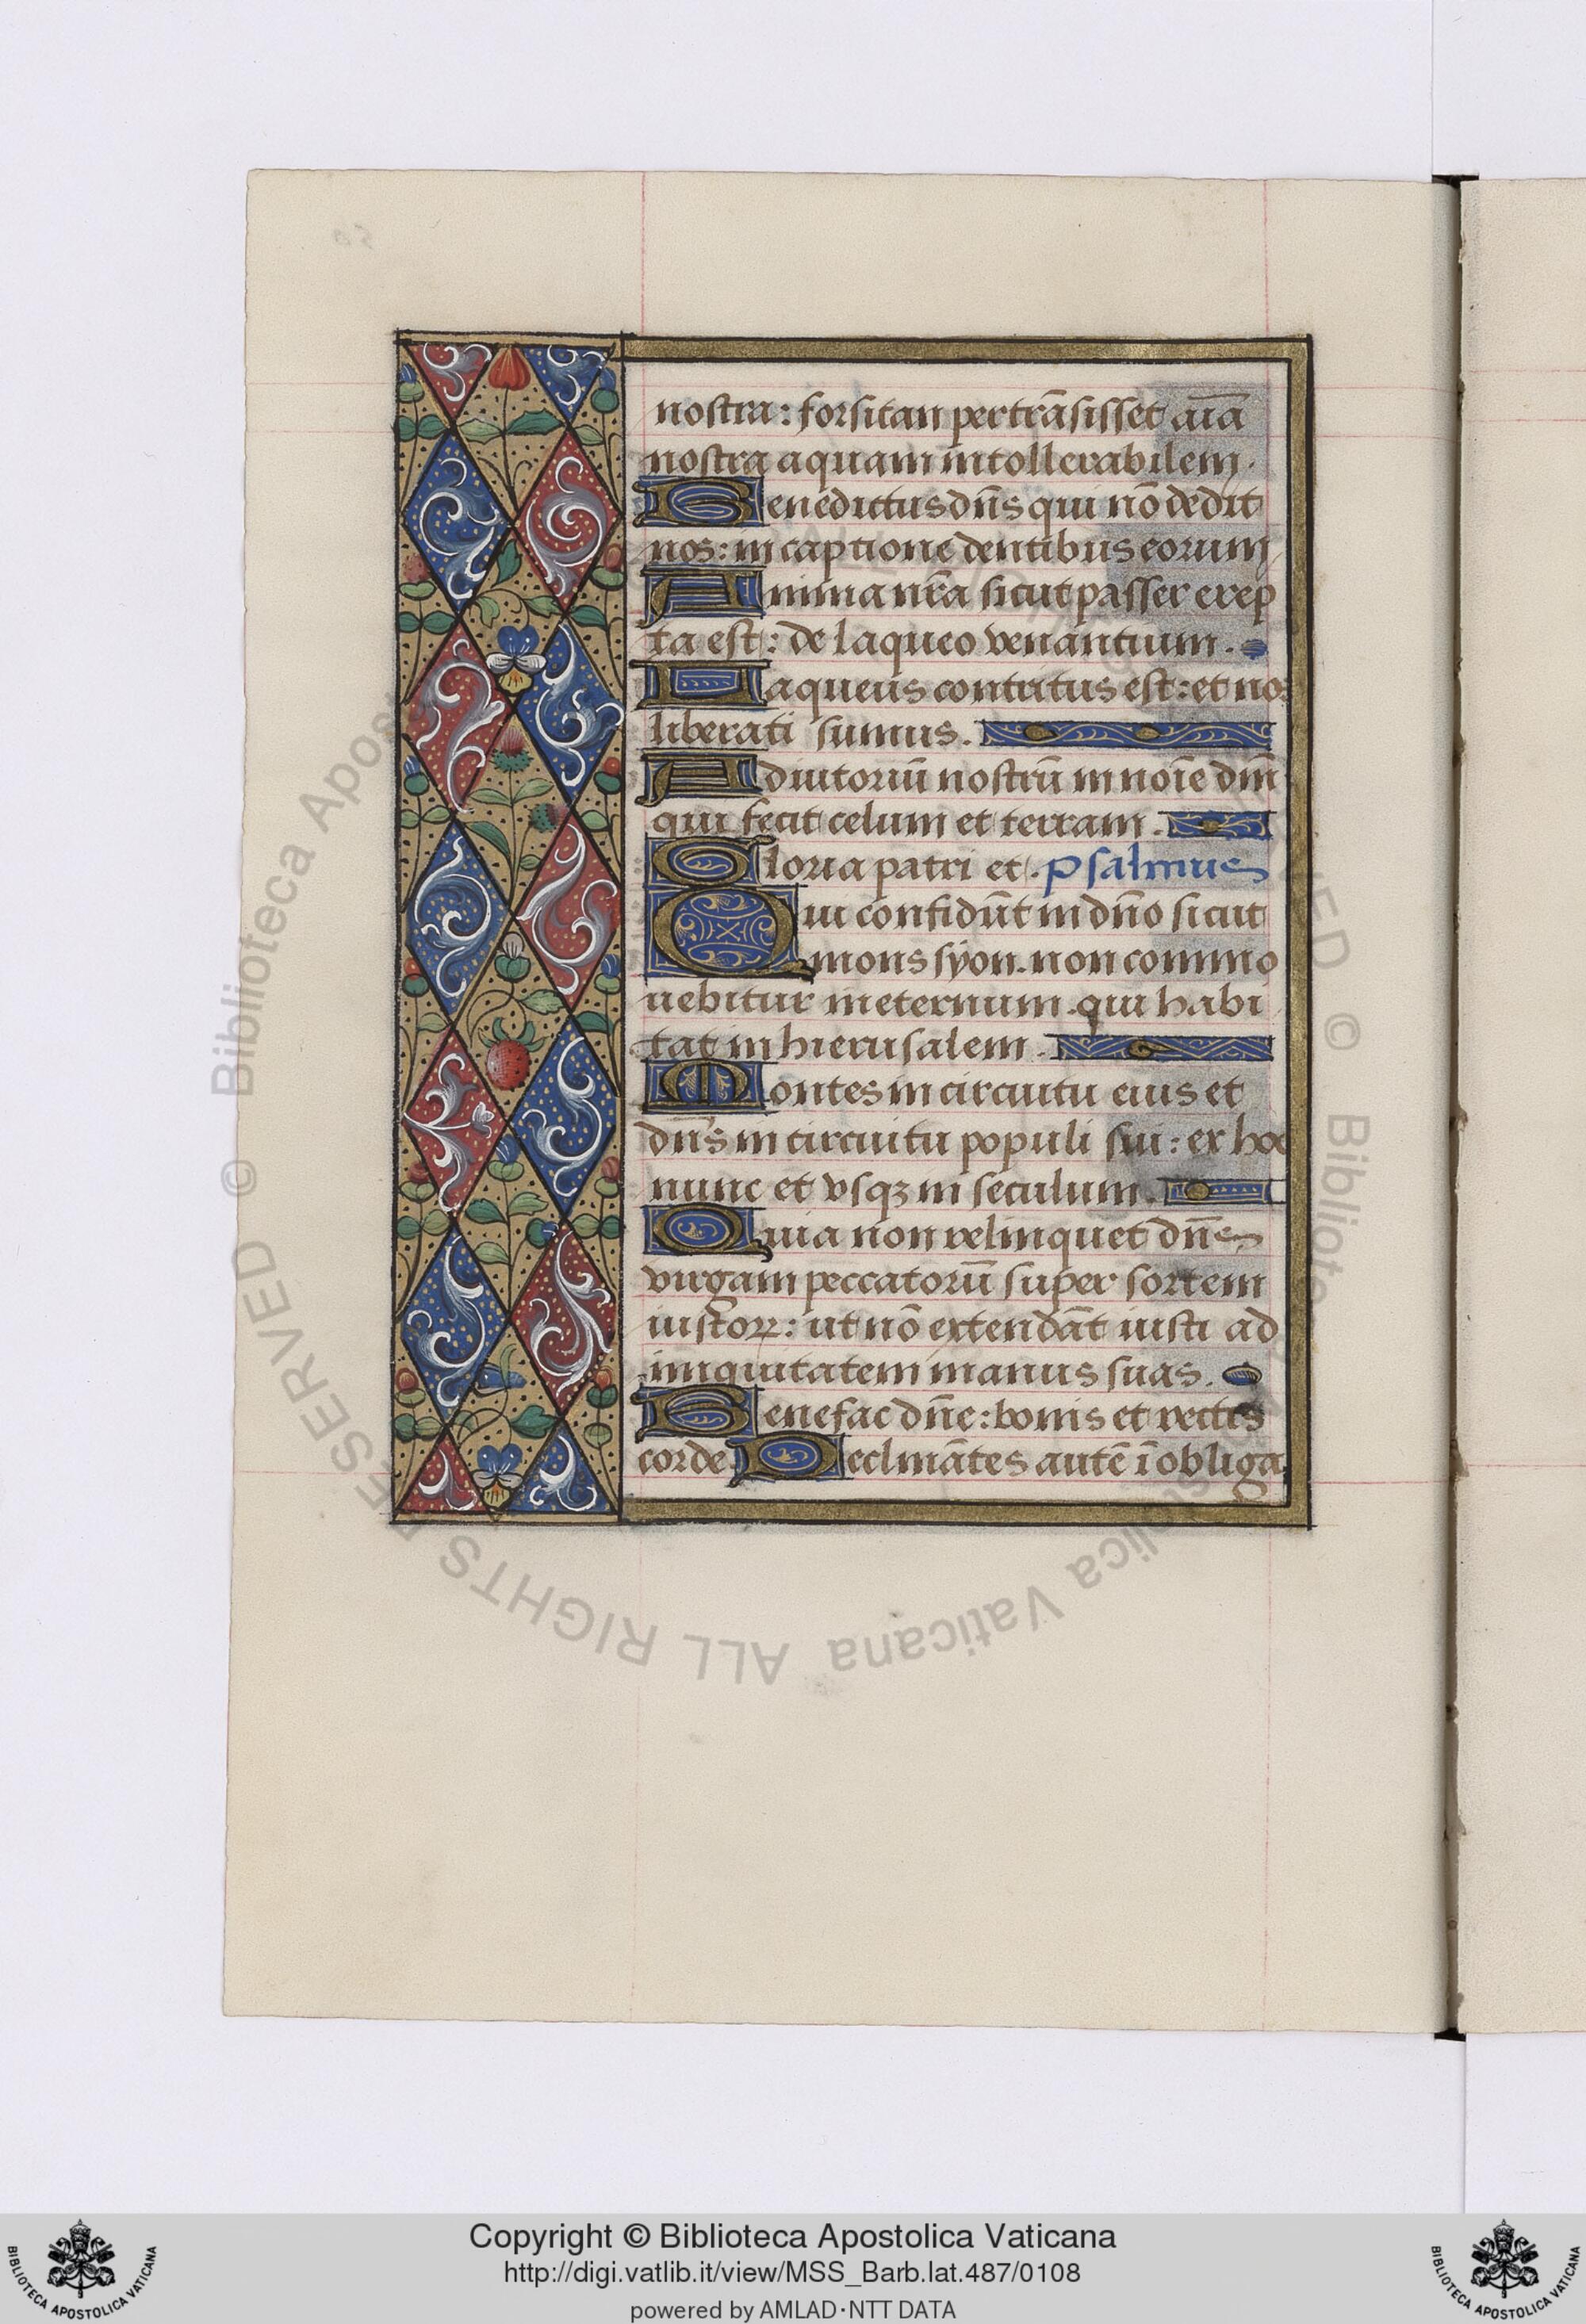 nostra: forsitan pertrāsisset aīa
nostra aquam intollerabilem.
Benedictus dn̄s qui nō dedit
nos: in captione dentibus eorum
Anima nr̄a sicut passer erep
ta est: de laqueo venantium.
Laqueus contritus est: et nos
liberati sumus.
Adiutoriū nostrū in noīe dn̄i
qui fecit celum et terram.
Gloria patri et. Psalmus
Qui confidūt in dn̄o sicut
mons syon. non commo
uebitur in eternum. qui habi
tat in hierusalem.
Montes in circuitu eius et
dn̄s in circuitu populi sui: ex hoc
nunc et vsqꝫ in seculum.
Quia non relinquet dn̄s
virgam peccatorū super sortem
iustoꝝ: ut nō extendāt iusti ad
iniquitatem manus suas.
Benefac dn̄e: bonis et rectis
corde. Declinātes autē ī obliga
Biblioteca Apostolica Vaticana ALL RIGHTS RESERVED ©
Copyright © Biblioteca Apostolica Vaticana
http://digi.vatlib.it/view/MSS_Barb.lat.487/0108
powered by AMLAD·NTT DATA
BIBLIOTECA APOSTOLICA VATICANA
BIBLIOTECA APOSTOLICA VATICANA